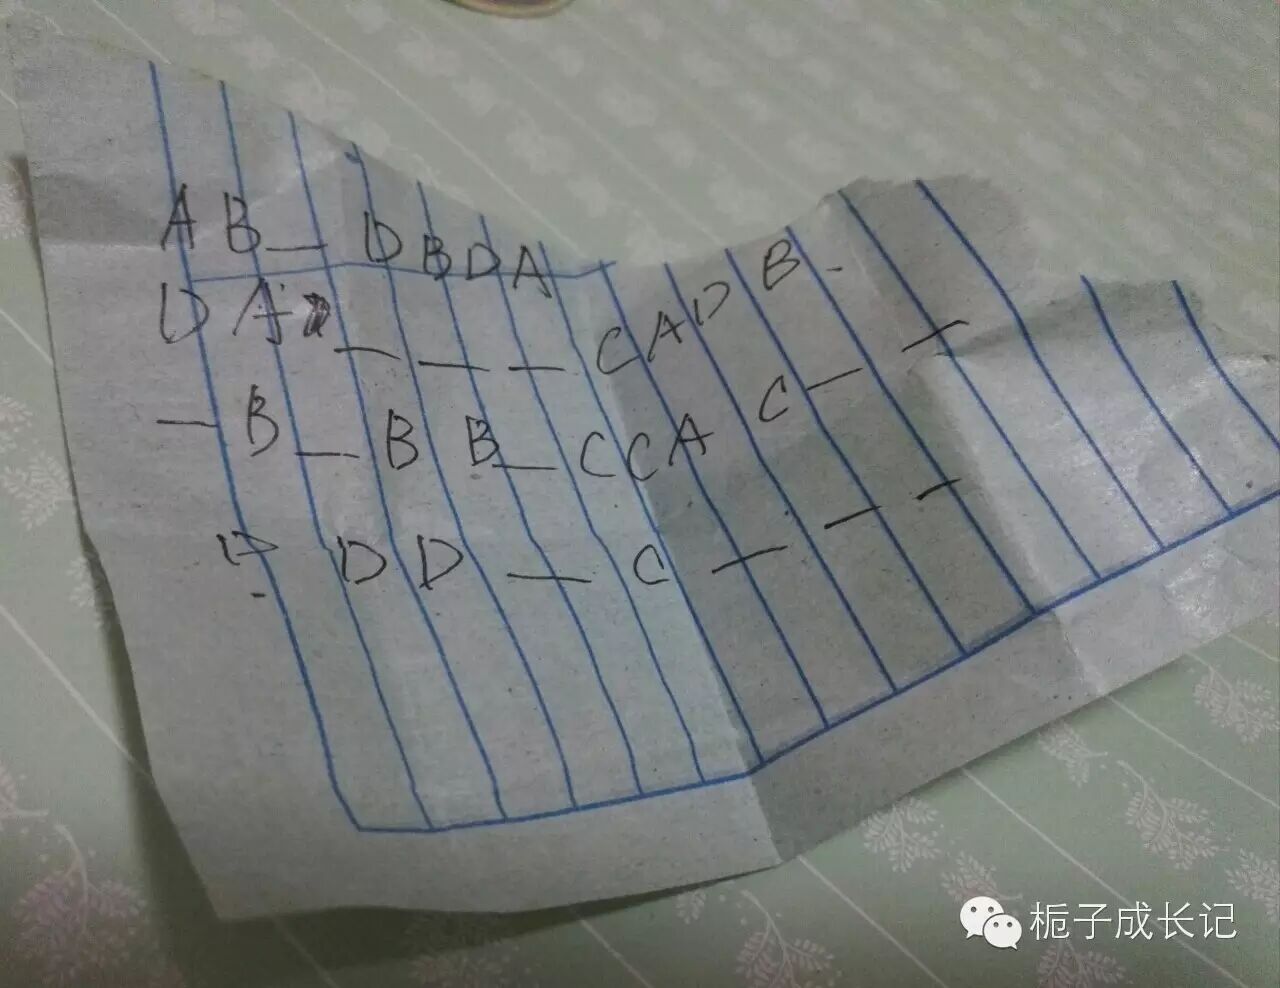 A B _ D B D A
D A _ _ _ C A D B _
_ B _ B B _ C C A C _ _
D D D _ C _ _ _
栀子成长记